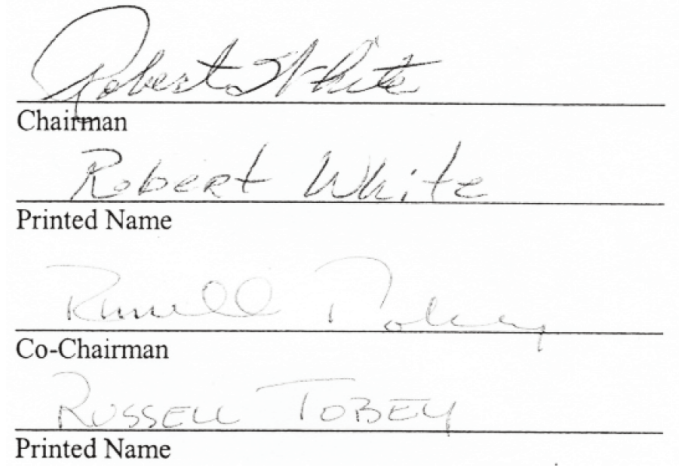 Robert White
Chairman
Robert White
Printed Name
Russell Tobey
Co-Chairman
RUSSELL TOBEY
Printed Name